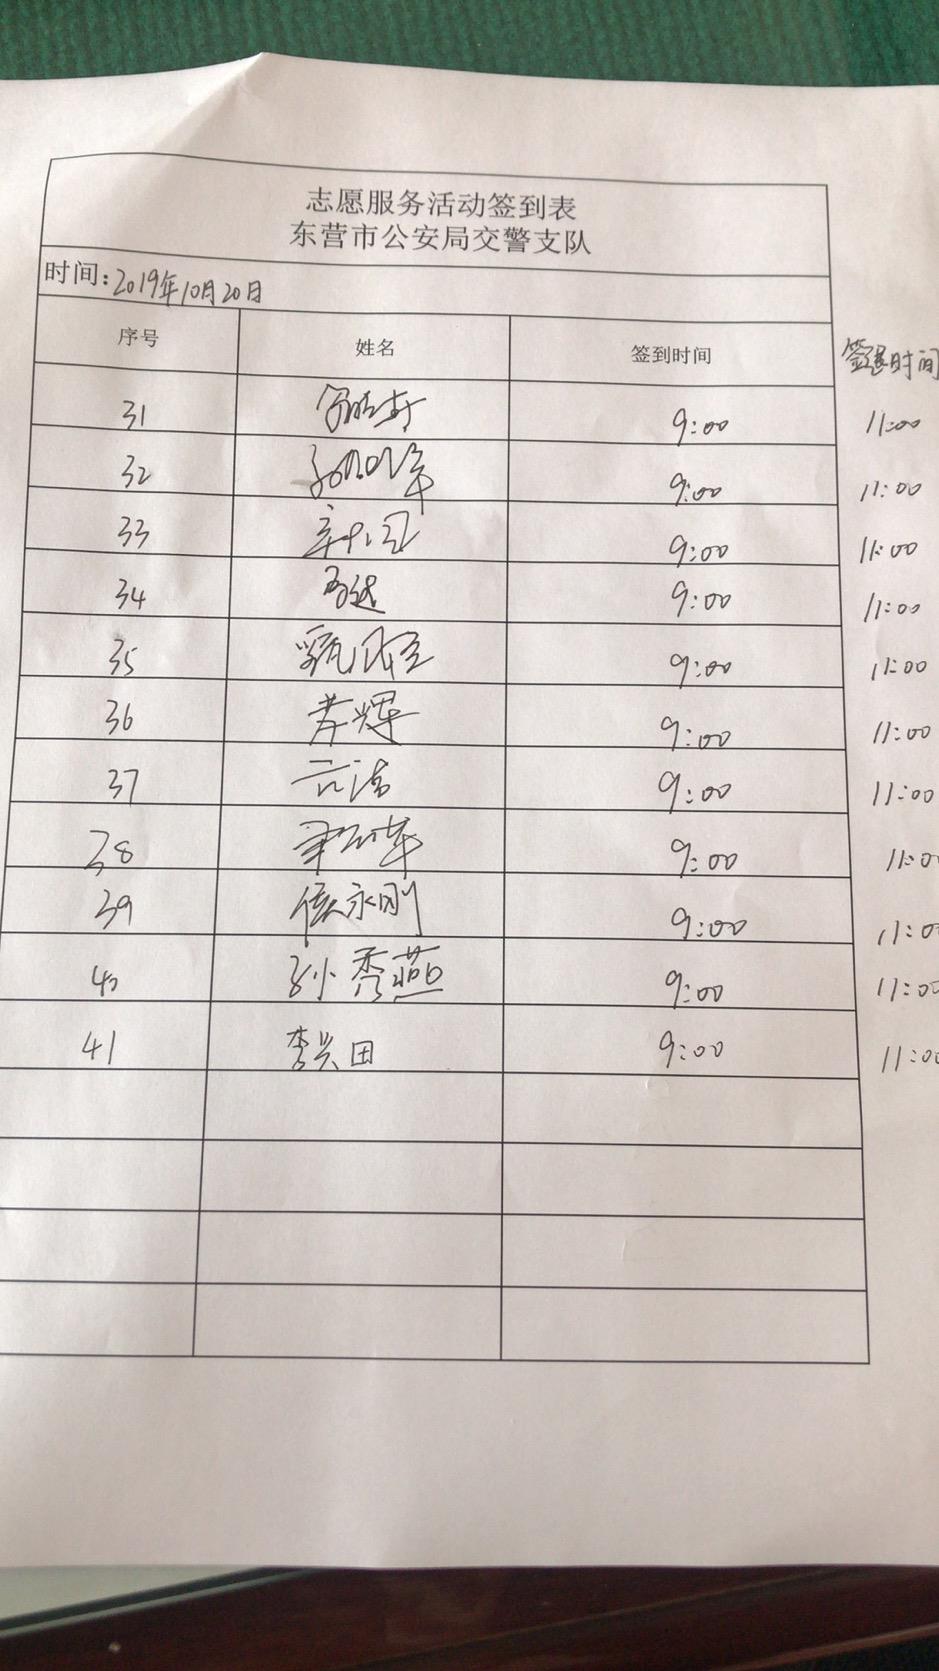 志愿服务活动签到表
东营市公安局交警支队
时间:2019年10月20日
序号 姓名 签到时间 签退时间
31 9:00 11:00
32 9:00 11:00
33 9:00 11:00
34 9:00 11:00
35 9:00 11:00
36 9:00 11:00
37 9:00 11:00
38 9:00 11:0
39 侯永刚 9:00 11:0
40 孙秀燕 9:00 11:00
41 李兴田 9:00 11:00